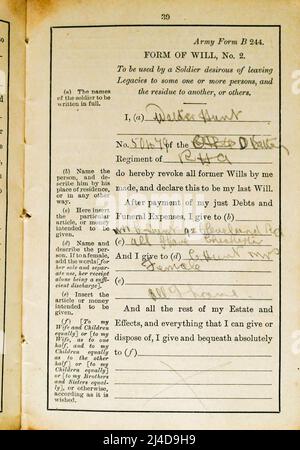 39
Army Form B 244.
FORM OF WILL, No. 2.
To be used by a Soldier desirous of leaving
Legacies to some one or more persons, and
the residue to another, or others.
(a) The names
of the soldier to be
written in full.
I, (a) Walter Hunt
No. of the D
Regiment of RHA
do hereby revoke all former Wills by me
made, and declare this to be my last Will.
(b) Name the
person, and de-
scribe him by his
place of residence,
or in any other
way.
(c) Here insert
the particular
article, or money
intended to be
given.
(d) Name and
describe the per-
son. If to a female,
add the words [for
her sole and separ-
ate use, her receipt
alone being a suffi-
cient discharge].
(e) Insert the
article or money
intended to be
given.
(f) [To my
Wife and Children
equally] or [to my
Wife, as to one
half, and to my
Children equally
as to the other
half] or [to my
Children equally]
or [to my Brothers
and Sisters equal-
ly], or otherwise,
according as it is
wished.
After payment of my just Debts and
Funeral Expenses, I give to (b)
Hunt 92 Cleveland Rd
(c) all Chichester
And I give to (d) Hunt
Female
(e)
And all the rest of my Estate and
Effects, and everything that I can give or
dispose of, I give and bequeath absolutely
to (f)
alamy
Image ID: 2J4D9H9
www.alamy.com